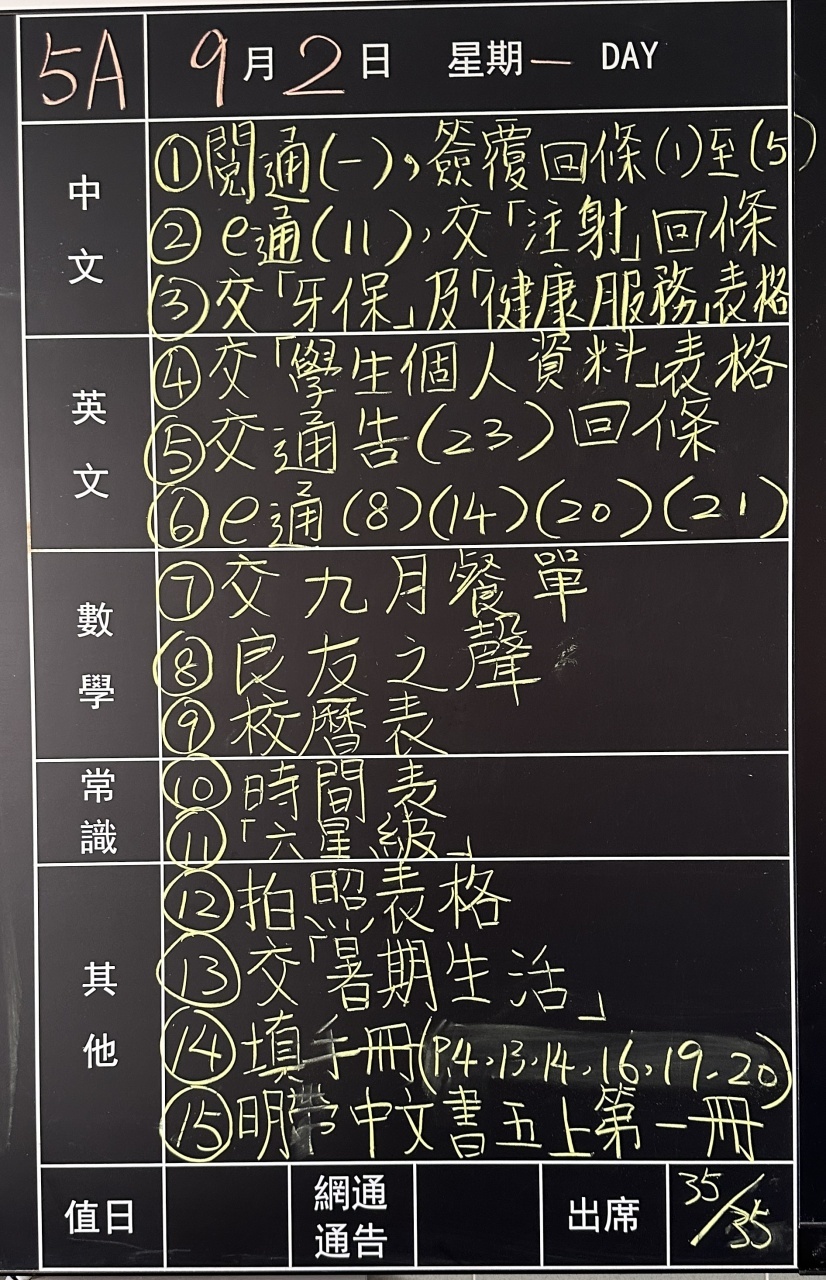 5A 9月2日 星期一 DAY
中文
①閱通(一)，簽覆回條(1)至(5)
②e通(11)，交「注射」回條
③交「牙保」及「健康服務」表格
英文
④交「學生個人資料」表格
⑤交通告(23)回條
⑥e通(8)(14)(20)(21)
數學
⑦交九月餐單
⑧良友之聲
⑨校曆表
常識
⑩時間表
⑪「六星級」
其他
⑫拍照表格
⑬交「暑期生活」
⑭填手冊(P.4、13、14、16、19、20)
⑮明帶中文書五上第一冊
值日 網通通告 出席 35/35